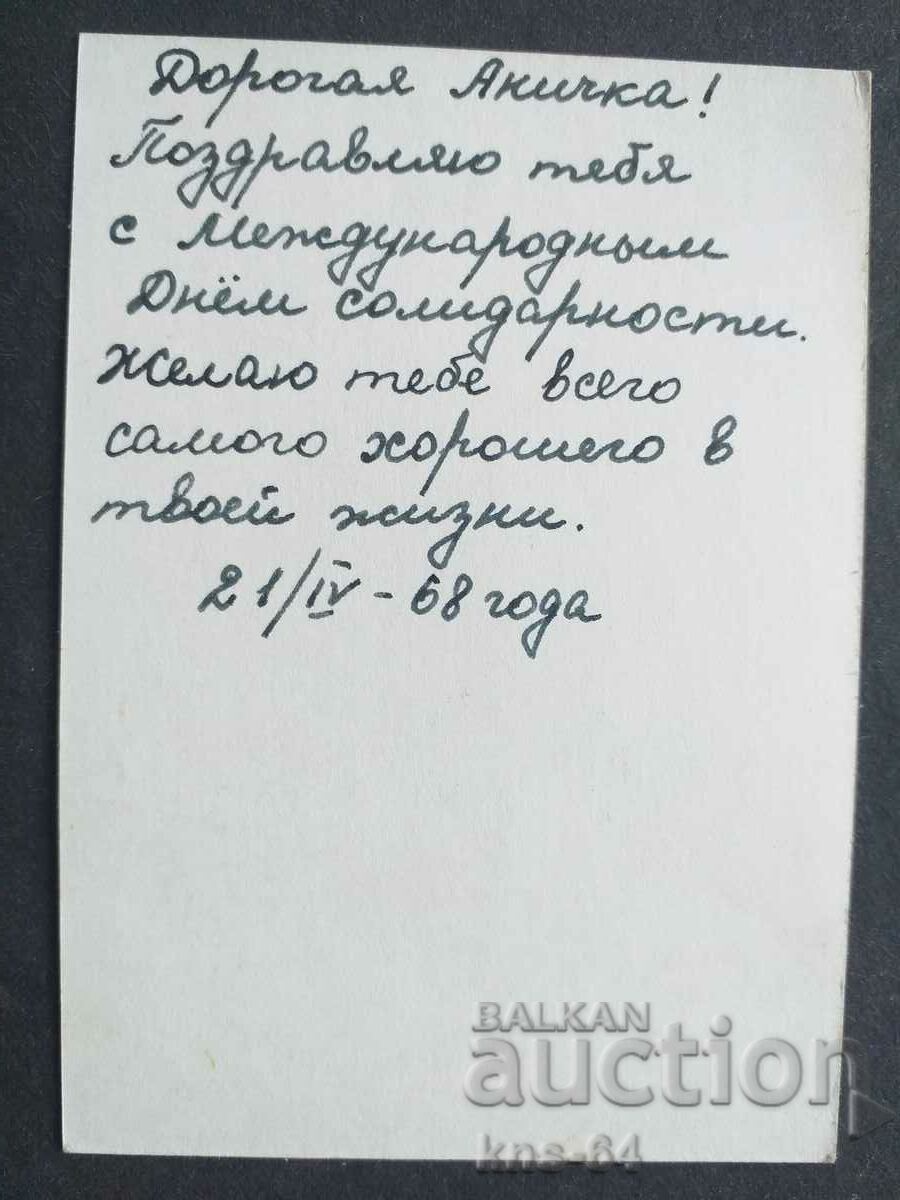 Дорогая Аничка!
Поздравляю тебя
с Международным
Днём солидарности.
Желаю тебе всего
самого хорошего в
твоей жизни.
21/IV - 68 года
BALKAN
auction
kns-64